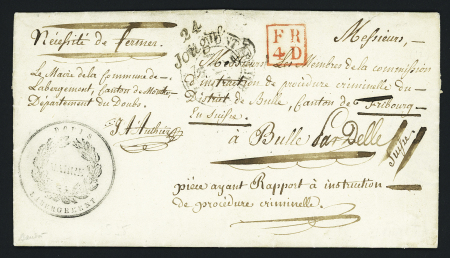 Nécessité de fermer.
Le Maire de la Commune de
Labergement, Canton de
Département du Doubs.
24
FR
4D
Messieurs,
Messieurs les Membres de la commission
instruction de procédure criminelle du
District de Bulle, Canton de Fribourg
En Suisse
à Bulle par Delle
Suisse
pièce ayant Rapport à instruction
de procédure criminelle.